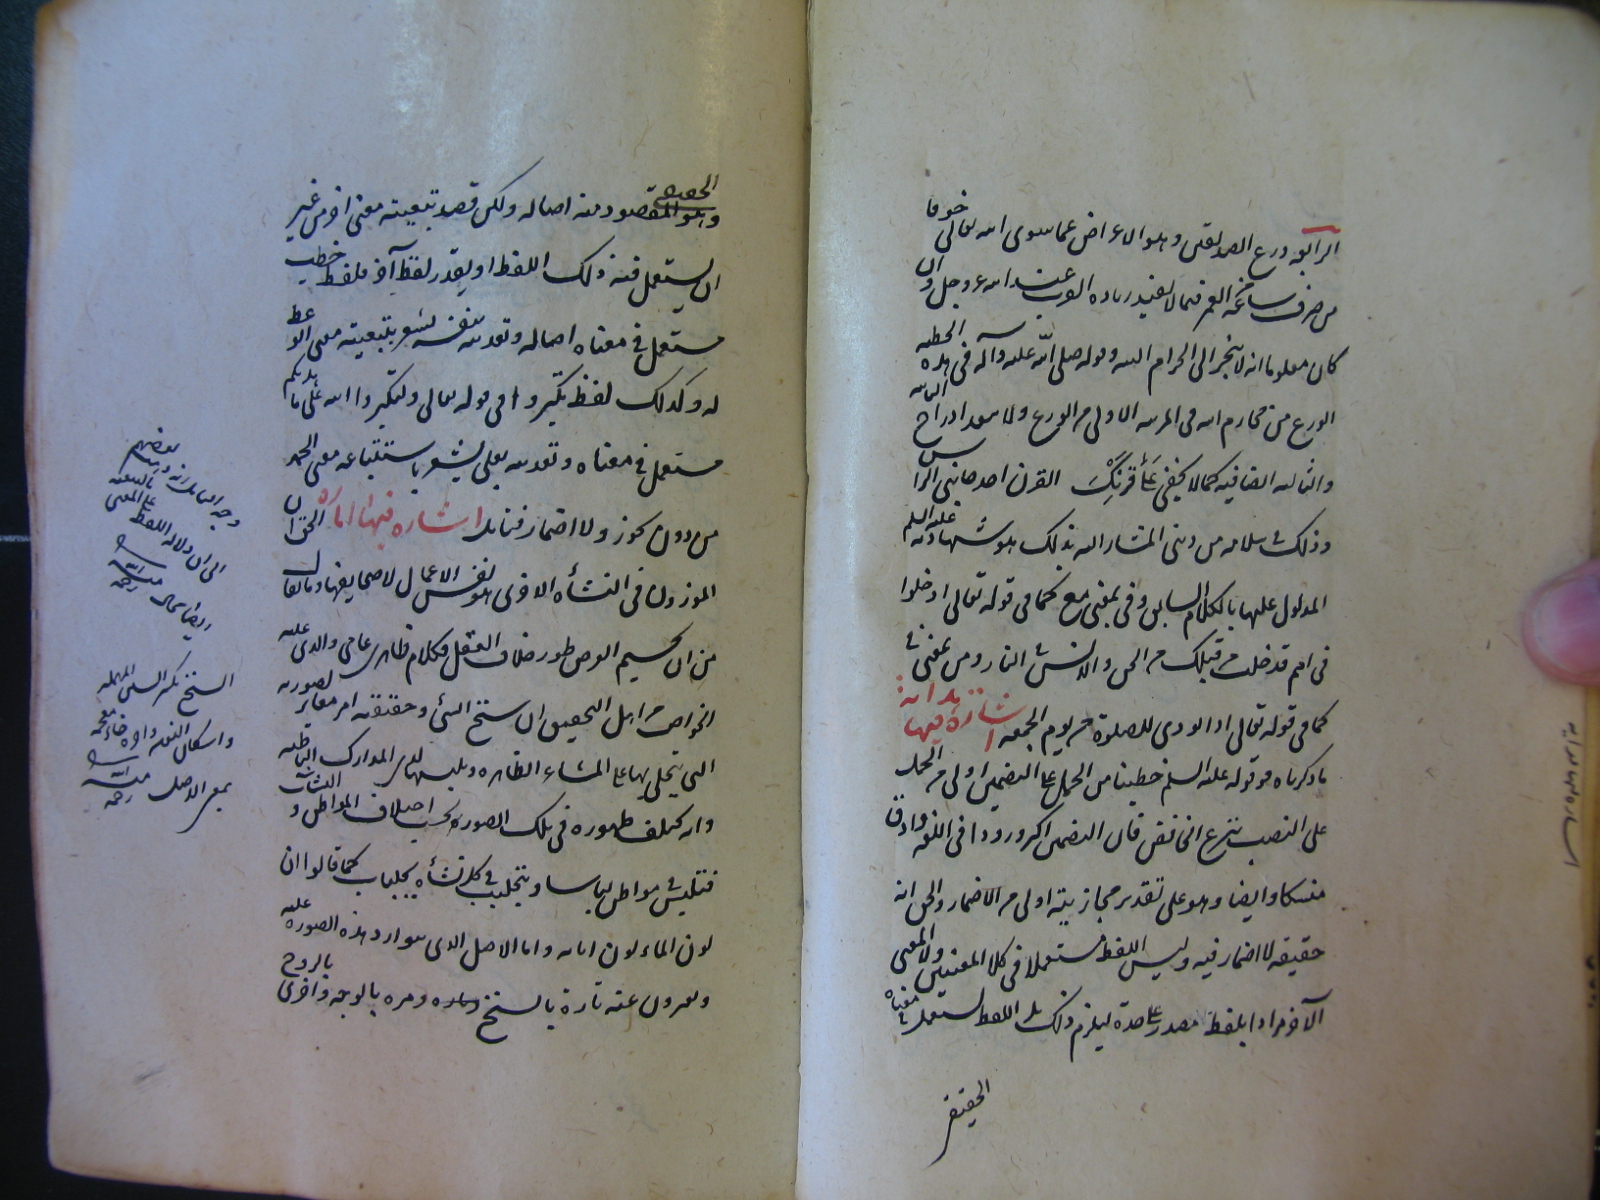 الرابعة ورع الصديقين وهو الاعراض عما سوى الله تعالى خوفا
من صرف ساعة من العمر فيما لا يفيد زيادة القرب عند الله عز وجل وان
كان معلوما انه لا ينجر الى الحرام البتة وقوله صلى الله عليه وآله في هذه الخطبة
الورع من محارم الله في المرتبة الاولى من الورع ولا يبعد ادراج الثانية
والثالثة ايضا فيه كما لا يخفى على قرنك القرن احد جانبي الراس
وذلك في سلامة من ديني المشار اليه بذلك هو شهادته عليه السلم
المدلول عليها بالكلام السابق وفي بمعنى مع كما في قوله تعالى ادخلوا
في امم قد خلت من قبلكم من الجن والانس في النار ومن بمعنى في
كما في قوله تعالى اذا نودي للصلوة من يوم الجمعة اشارة فيها هداية
ما ذكرناه في قوله عليه السلم خطبنا من الحمل على التضمين اولى من الحمل
على النصب بنزع الخافض فان التضمين اكثر ورودا في اللغة وادق
مسلكا وايضا وهو على تقدير مجازيته اولى من الاضمار والحق انه
حقيقة لا اضمار فيه وليس اللفظ مستعملا في كلا المعنيين ولا المعنى
الآخر مرادا بلفظ مقدر على حدة ليلزم ذلك بل اللفظ مستعمل في معناه
الحقيقي
الحقيقي
وهو المقصود منه اصالة ولكن قصد بتبعيته معنى آخر من غير
ان يستعمل فيه ذلك اللفظ او يقدر لفظ آخر فلفظ خطب
مستعمل في معناه اصالة وتعديته بنفسه يشعر بتبعيته معنى الوعظ
له وكذلك لفظ تكبروا في قوله تعالى ولتكبروا الله على ما هديكم
مستعمل في معناه وتعديته بعلى يشعر باستتباعه معنى الحمد
من دون تجوز ولا اضمار فتامل اشارة فيها انارة الحق ان
الموزون في النشأة الاخرى هو نفس الاعمال لا صحايفها وما يقال
من ان تجسيم العرض طور خلاف العقل فكلام ظاهري عامي والذي عليه
الخواص من اهل التحقيق ان سنخ الشئ وحقيقته امر مغاير لصورته
التي يتجلى بها على المشاعر الظاهرة ويلبسها لدى المدارك الباطنة
وانه يختلف ظهوره في تلك الصورة بحسب اختلاف المواطن والنشآت
فيتلبس في كل مواطن لباسا ويتجلبب في كل نشأة بجلباب كما قالوا ان
لون الماء لون انائه واما الاصل الذي يتوارد هذه الصورة عليه
ويعبرون عنه تارة بالسنخ ومرة بالوجه واخرى بالروح
السنخ بكسر السين المهملة
واسكان النون وآخره خاء معجمة
بمعنى الاصل منه رحمه الله